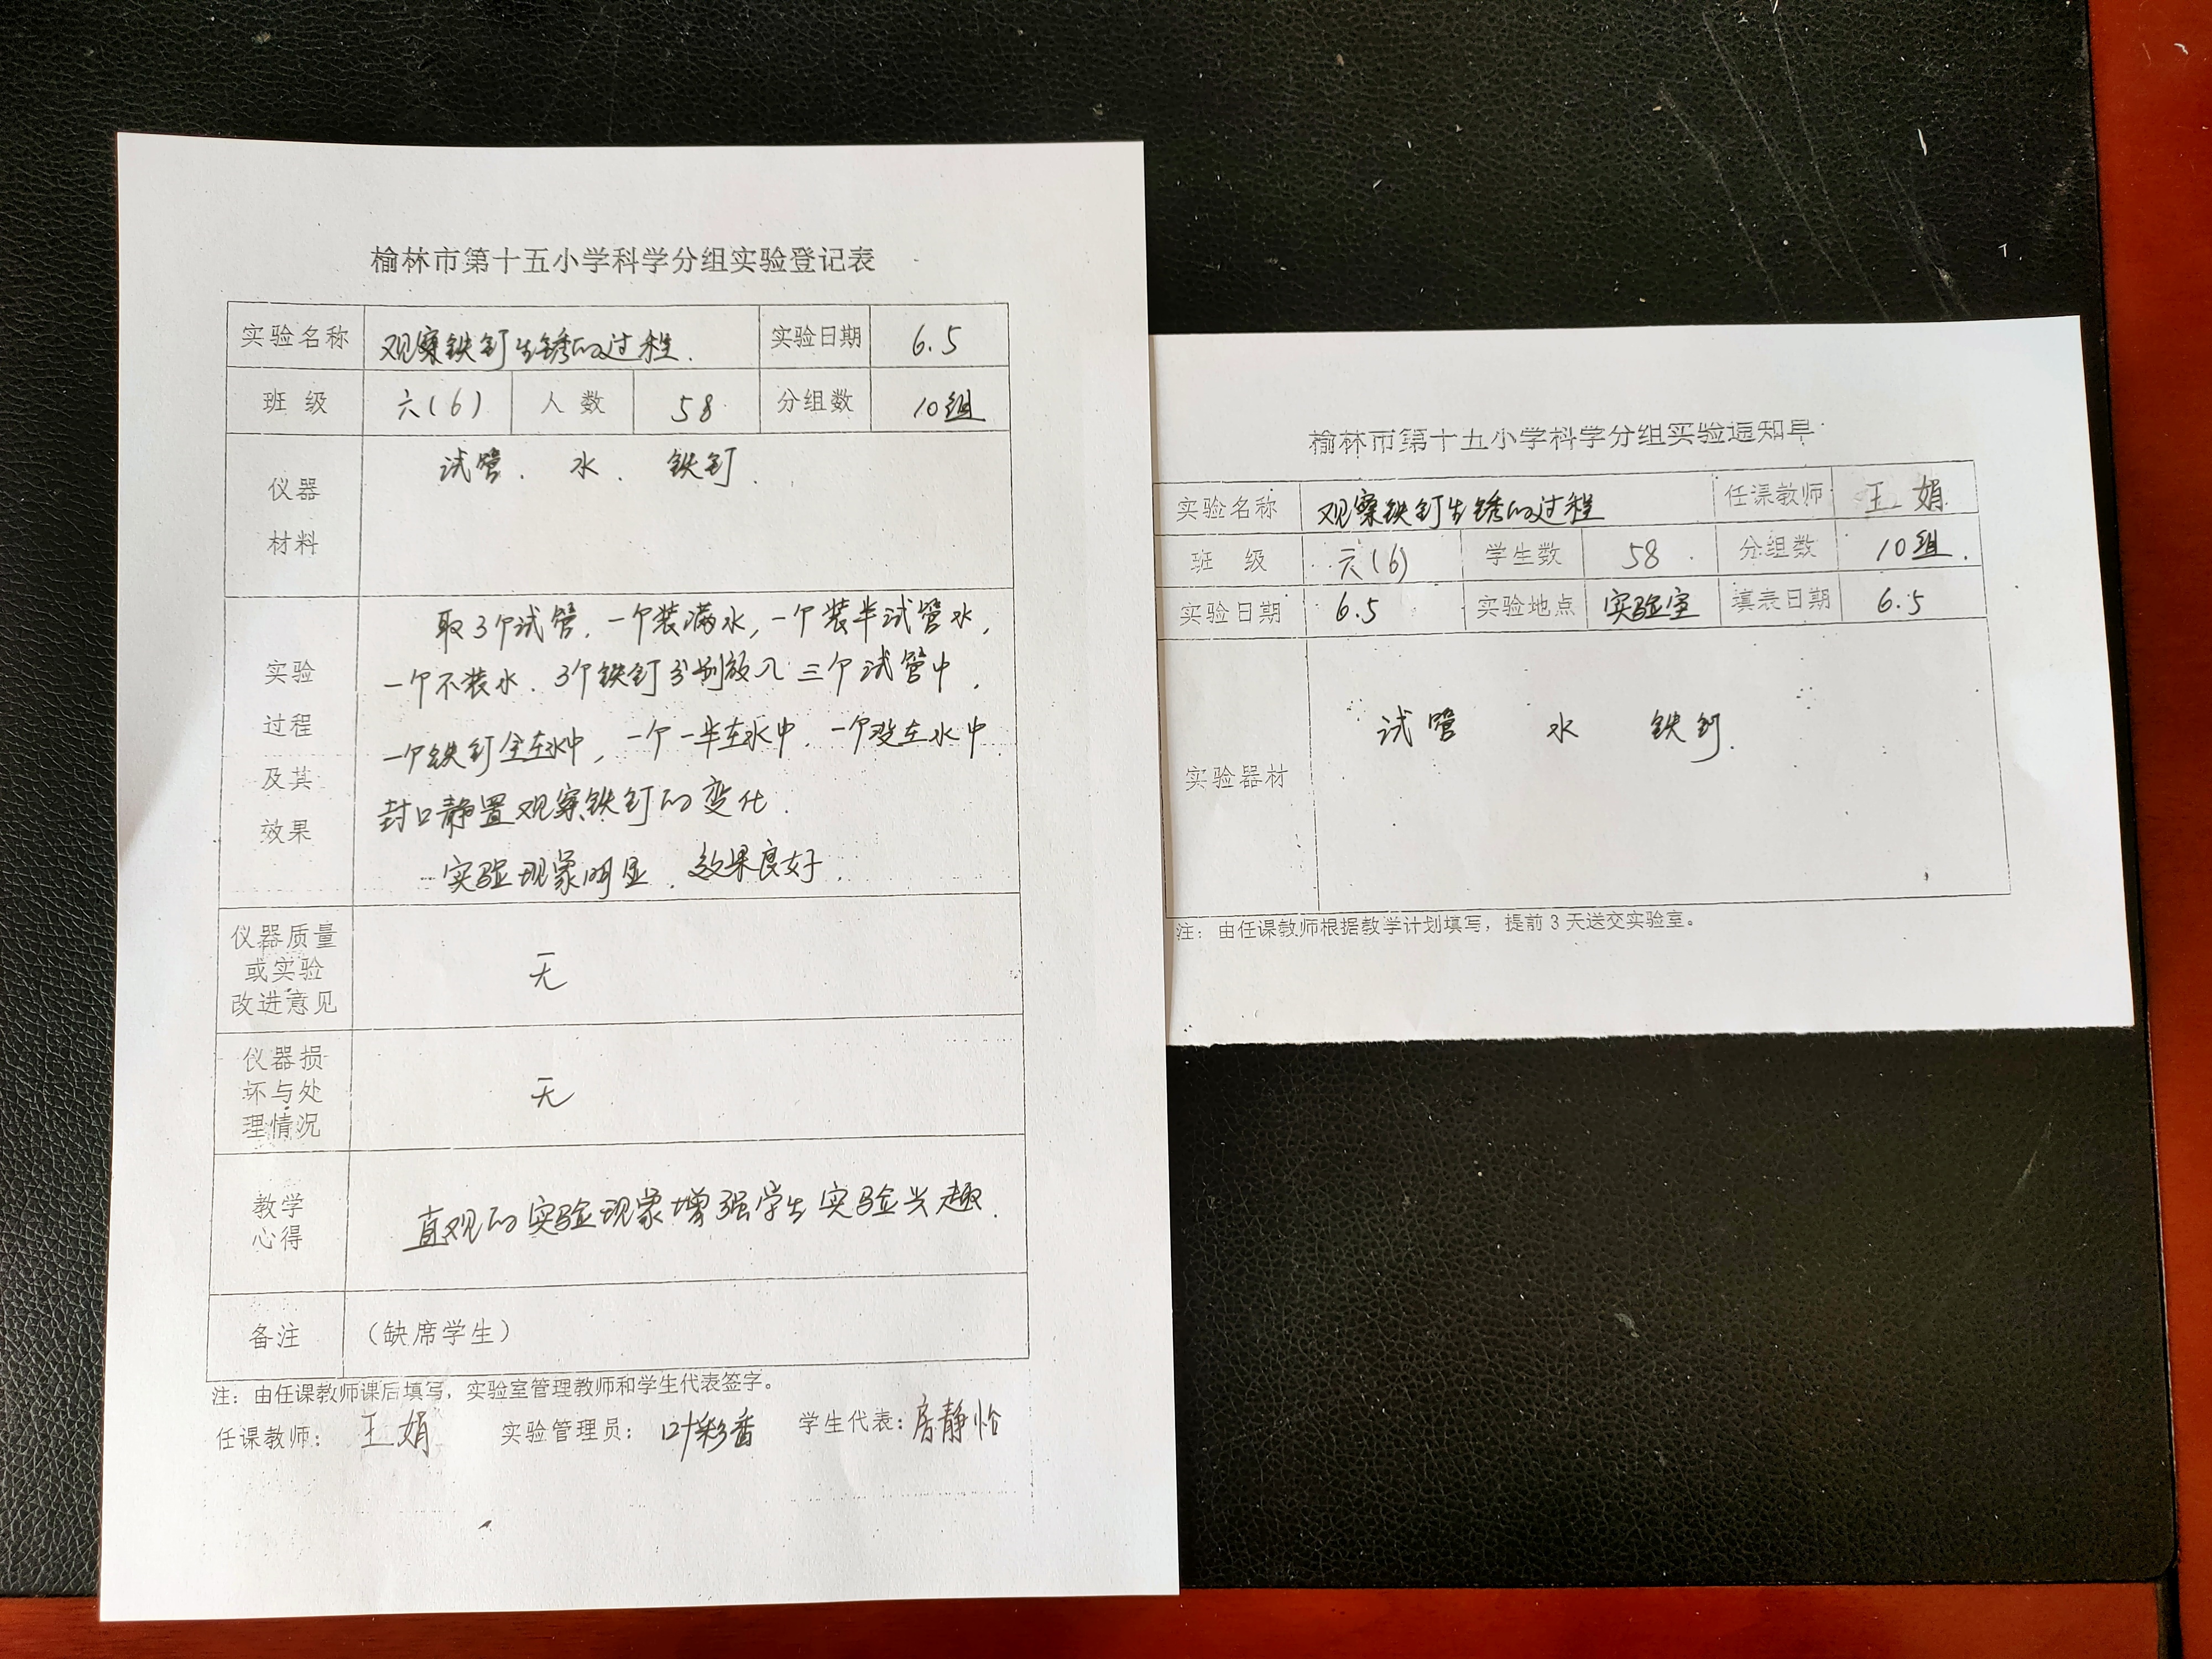 榆林市第十五小学科学分组实验登记表
实验名称 观察铁钉生锈的过程. 实验日期 6.5
班 级 六(6) 人 数 58 分组数 10组
仪器
材料
试管. 水. 铁钉.
实验
过程
及其
效果
取3个试管, 一个装满水, 一个装半试管水,
一个不装水. 3个铁钉分别放入三个试管中.
一个铁钉全在水中, 一个一半在水中. 一个没在水中.
封口静置观察铁钉的变化.
实验现象明显. 效果良好.
仪器质量
或实验
改进意见
无
仪器损
坏与处
理情况
无
教学
心得
直观的实验现象增强学生实验兴趣.
备注 (缺席学生)
注: 由任课教师课后填写, 实验室管理教师和学生代表签字。
任课教师: 王娟 实验管理员: 叶彩香 学生代表: 房静怡
榆林市第十五小学科学分组实验通知单
实验名称 观察铁钉生锈的过程 任课教师 王娟
班 级 六(6) 学生数 58 分组数 10组.
实验日期 6.5 实验地点 实验室 填表日期 6.5
实验器材 试管 水 铁钉.
注: 由任课教师根据教学计划填写, 提前 3 天送交实验室。